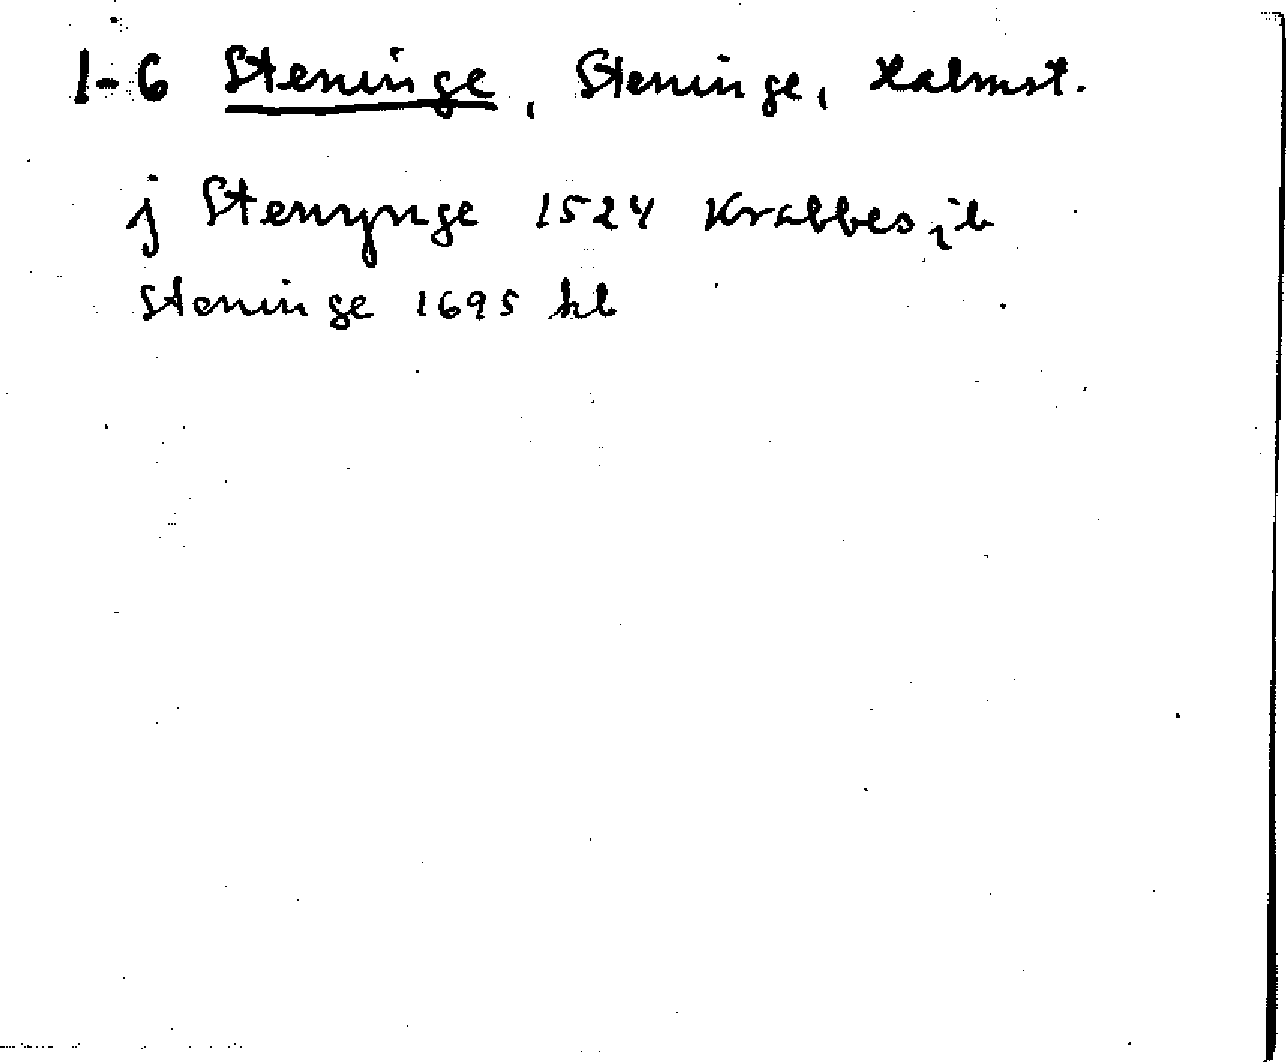 1-6 Steninge, Steninge, Halmst.
j Stenynge 1524 Krabbes jb
Steninge 1695 hl